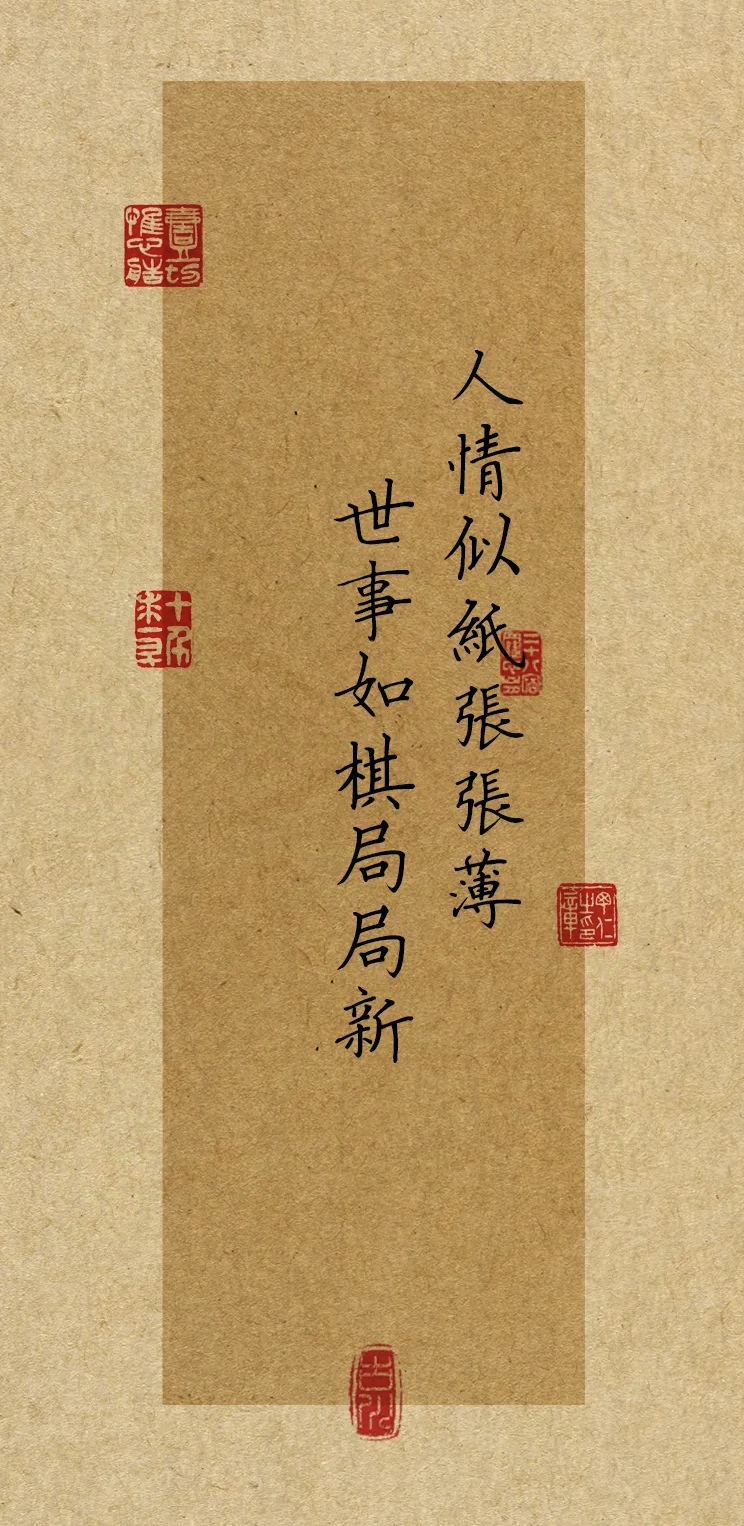 人情似紙張張薄
世事如棋局局新